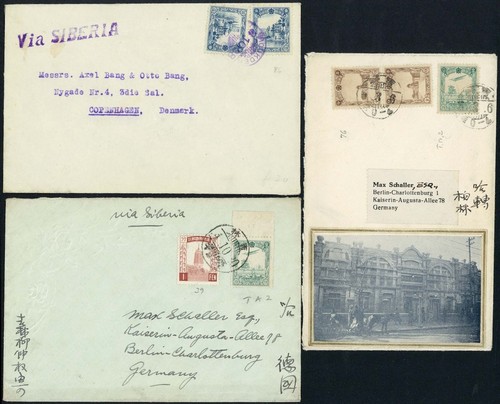 Via SIBERIA
Messrs. Axel Bang & Otto Bang,
Nygade Nr.4, 3die Sal.
COPENHAGEN, Denmark.
Max Schaller, ESQ.,
Berlin-Charlottenburg 1
Kaiserin-Augusta-Allee 78
Germany
柏林
via Siberia
29
TA2
Max Schaller Esq,
Kaiserin-Augusta-Allee 78
Berlin-Charlottenburg
Germany
德國